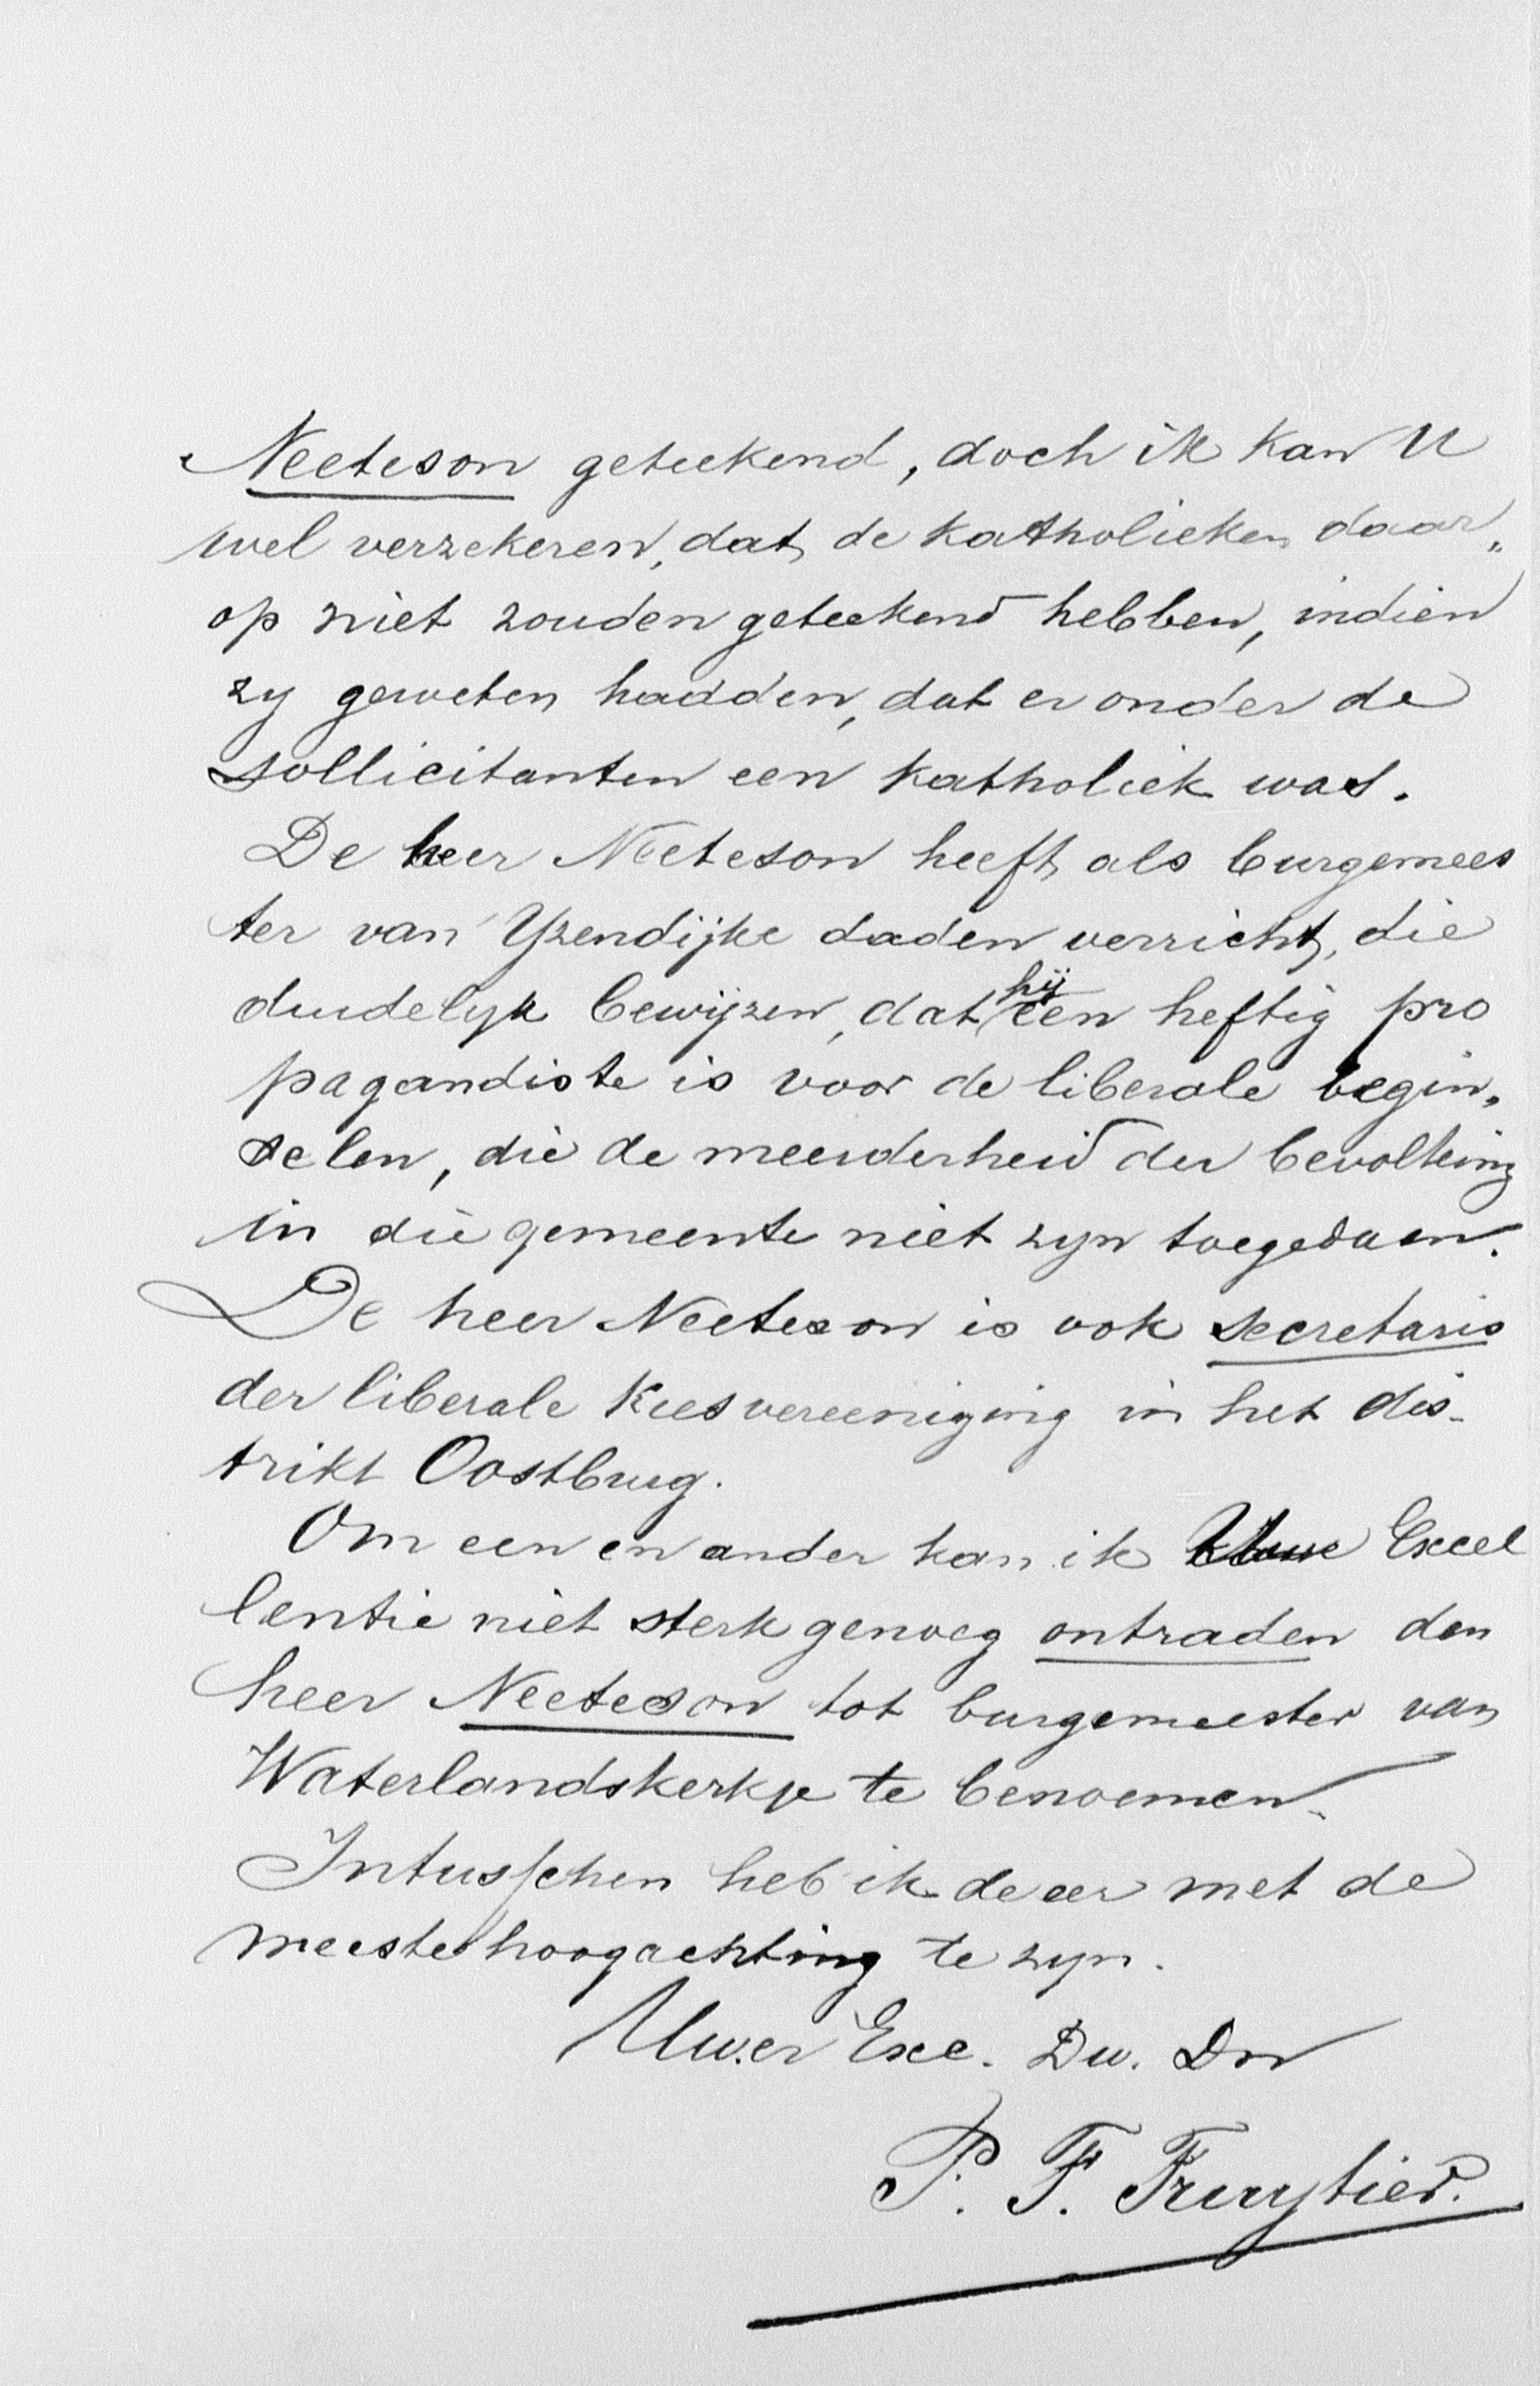 Neeteson geteekend, doch ik kan U
wel verzekeren, dat de katholieken daar„
op niet zouden geteekend hebben, indien
zy geweten hadden, dat er onder de
sollicitanten een katholiek was.
De heer Neeteson heeft als burgemees
ter van Yzendijke daden verricht, die
duidelyk bewijzen, dat hij een heftig pro
pagandiste is voor de liberale begin„
selen, die de meerderheid der bevolking
in die gemeente niet zyn toegedaan.
De heer Neeteson is ook secretaris
der liberale Kiesvereeniging in het dis-
trikt Oostburg.
Om een en ander kan ik Uwe Excel
lentie niet sterk genoeg ontraden den
heer Neeteson tot burgemeester van
Waterlandskerkje te benoemen.
Intusschen heb ik de eer met de
meeste hoogachting te zyn.
Uw.er Exc. Dw. Dn
P. F. Fruytier.